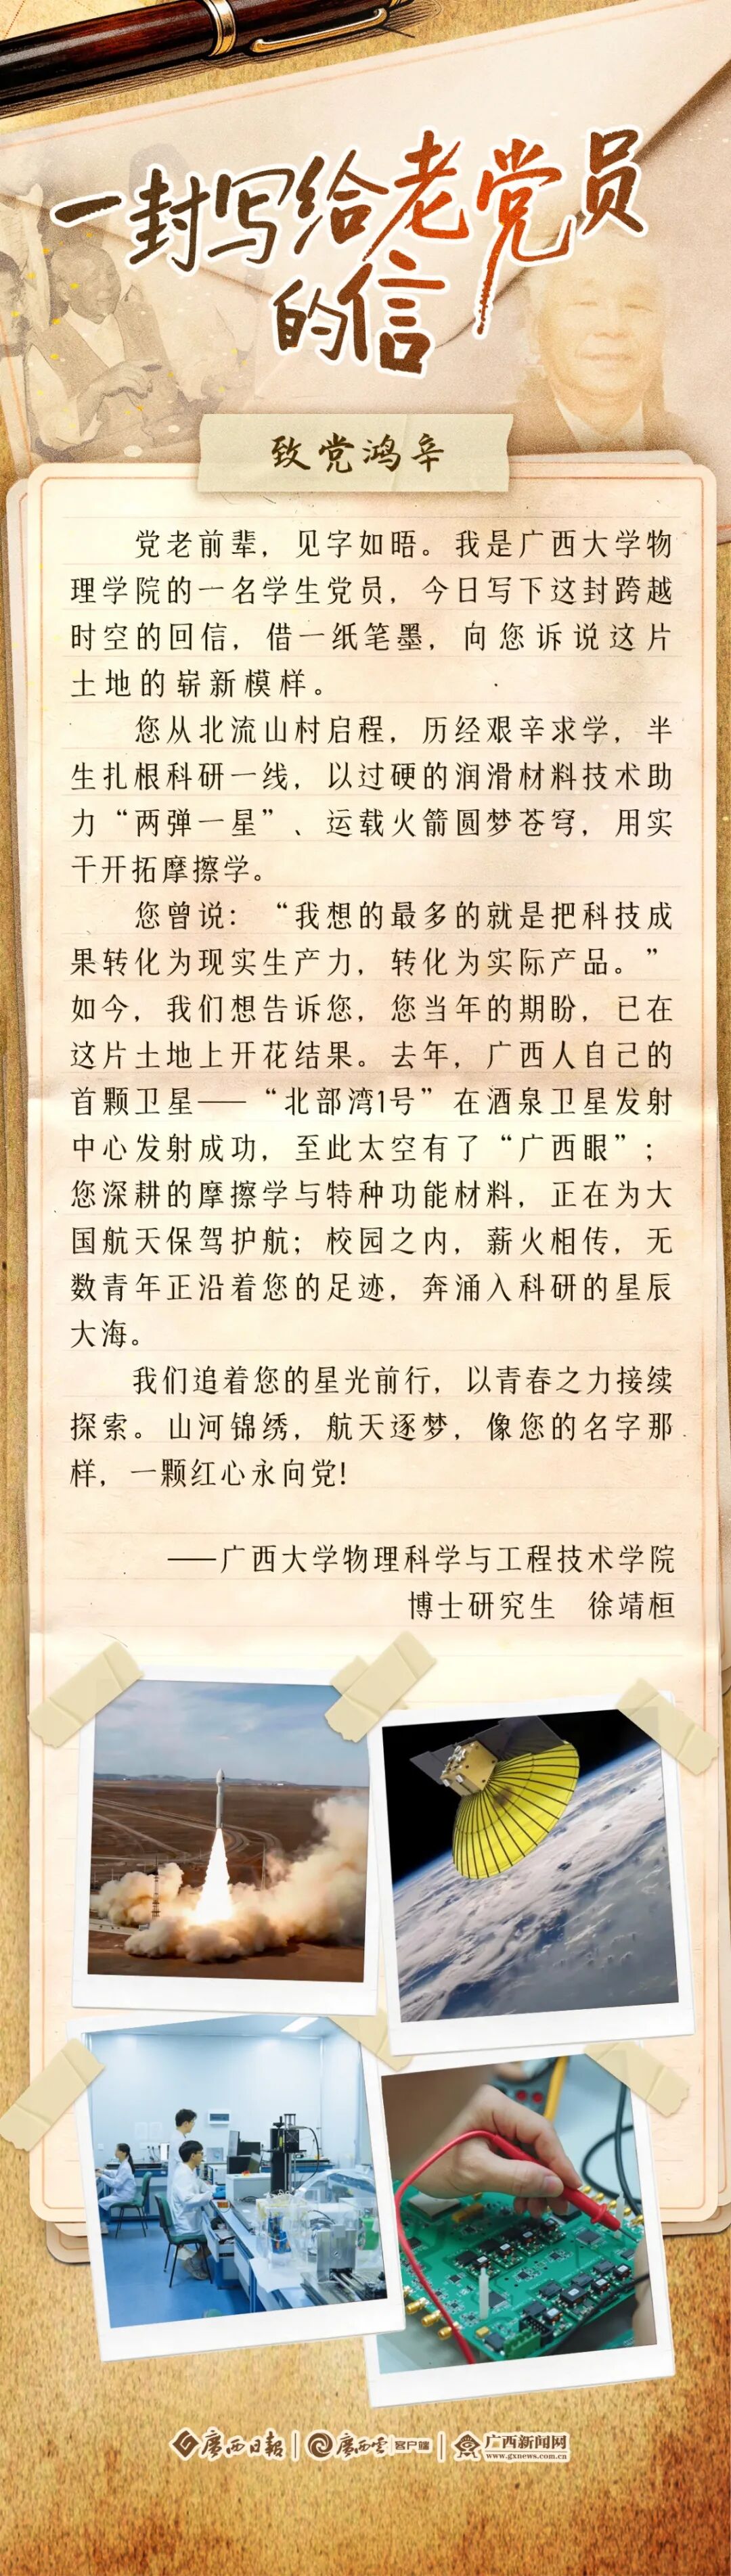 一封写给老党员
的信
致党鸿辛
党老前辈，见字如晤。我是广西大学物
理学院的一名学生党员，今日写下这封跨越
时空的回信，借一纸笔墨，向您诉说这片
土地的崭新模样。
您从北流山村启程，历经艰辛求学，半
生扎根科研一线，以过硬的润滑材料技术助
力“两弹一星”、运载火箭圆梦苍穹，用实
干开拓摩擦学。
您曾说：“我想的最多的就是把科技成
果转化为现实生产力，转化为实际产品。”
如今，我们想告诉您，您当年的期盼，已在
这片土地上开花结果。去年，广西人自己的
首颗卫星——“北部湾1号”在酒泉卫星发射
中心发射成功，至此太空有了“广西眼”；
您深耕的摩擦学与特种功能材料，正在为大
国航天保驾护航；校园之内，薪火相传，无
数青年正沿着您的足迹，奔涌入科研的星辰
大海。
我们追着您的星光前行，以青春之力接续
探索。山河锦绣，航天逐梦，像您的名字那
样，一颗红心永向党！
——广西大学物理科学与工程技术学院
博士研究生　徐靖桓
廣西日報 | 廣西雲 客户端 | 广西新闻网
www.gxnews.com.cn